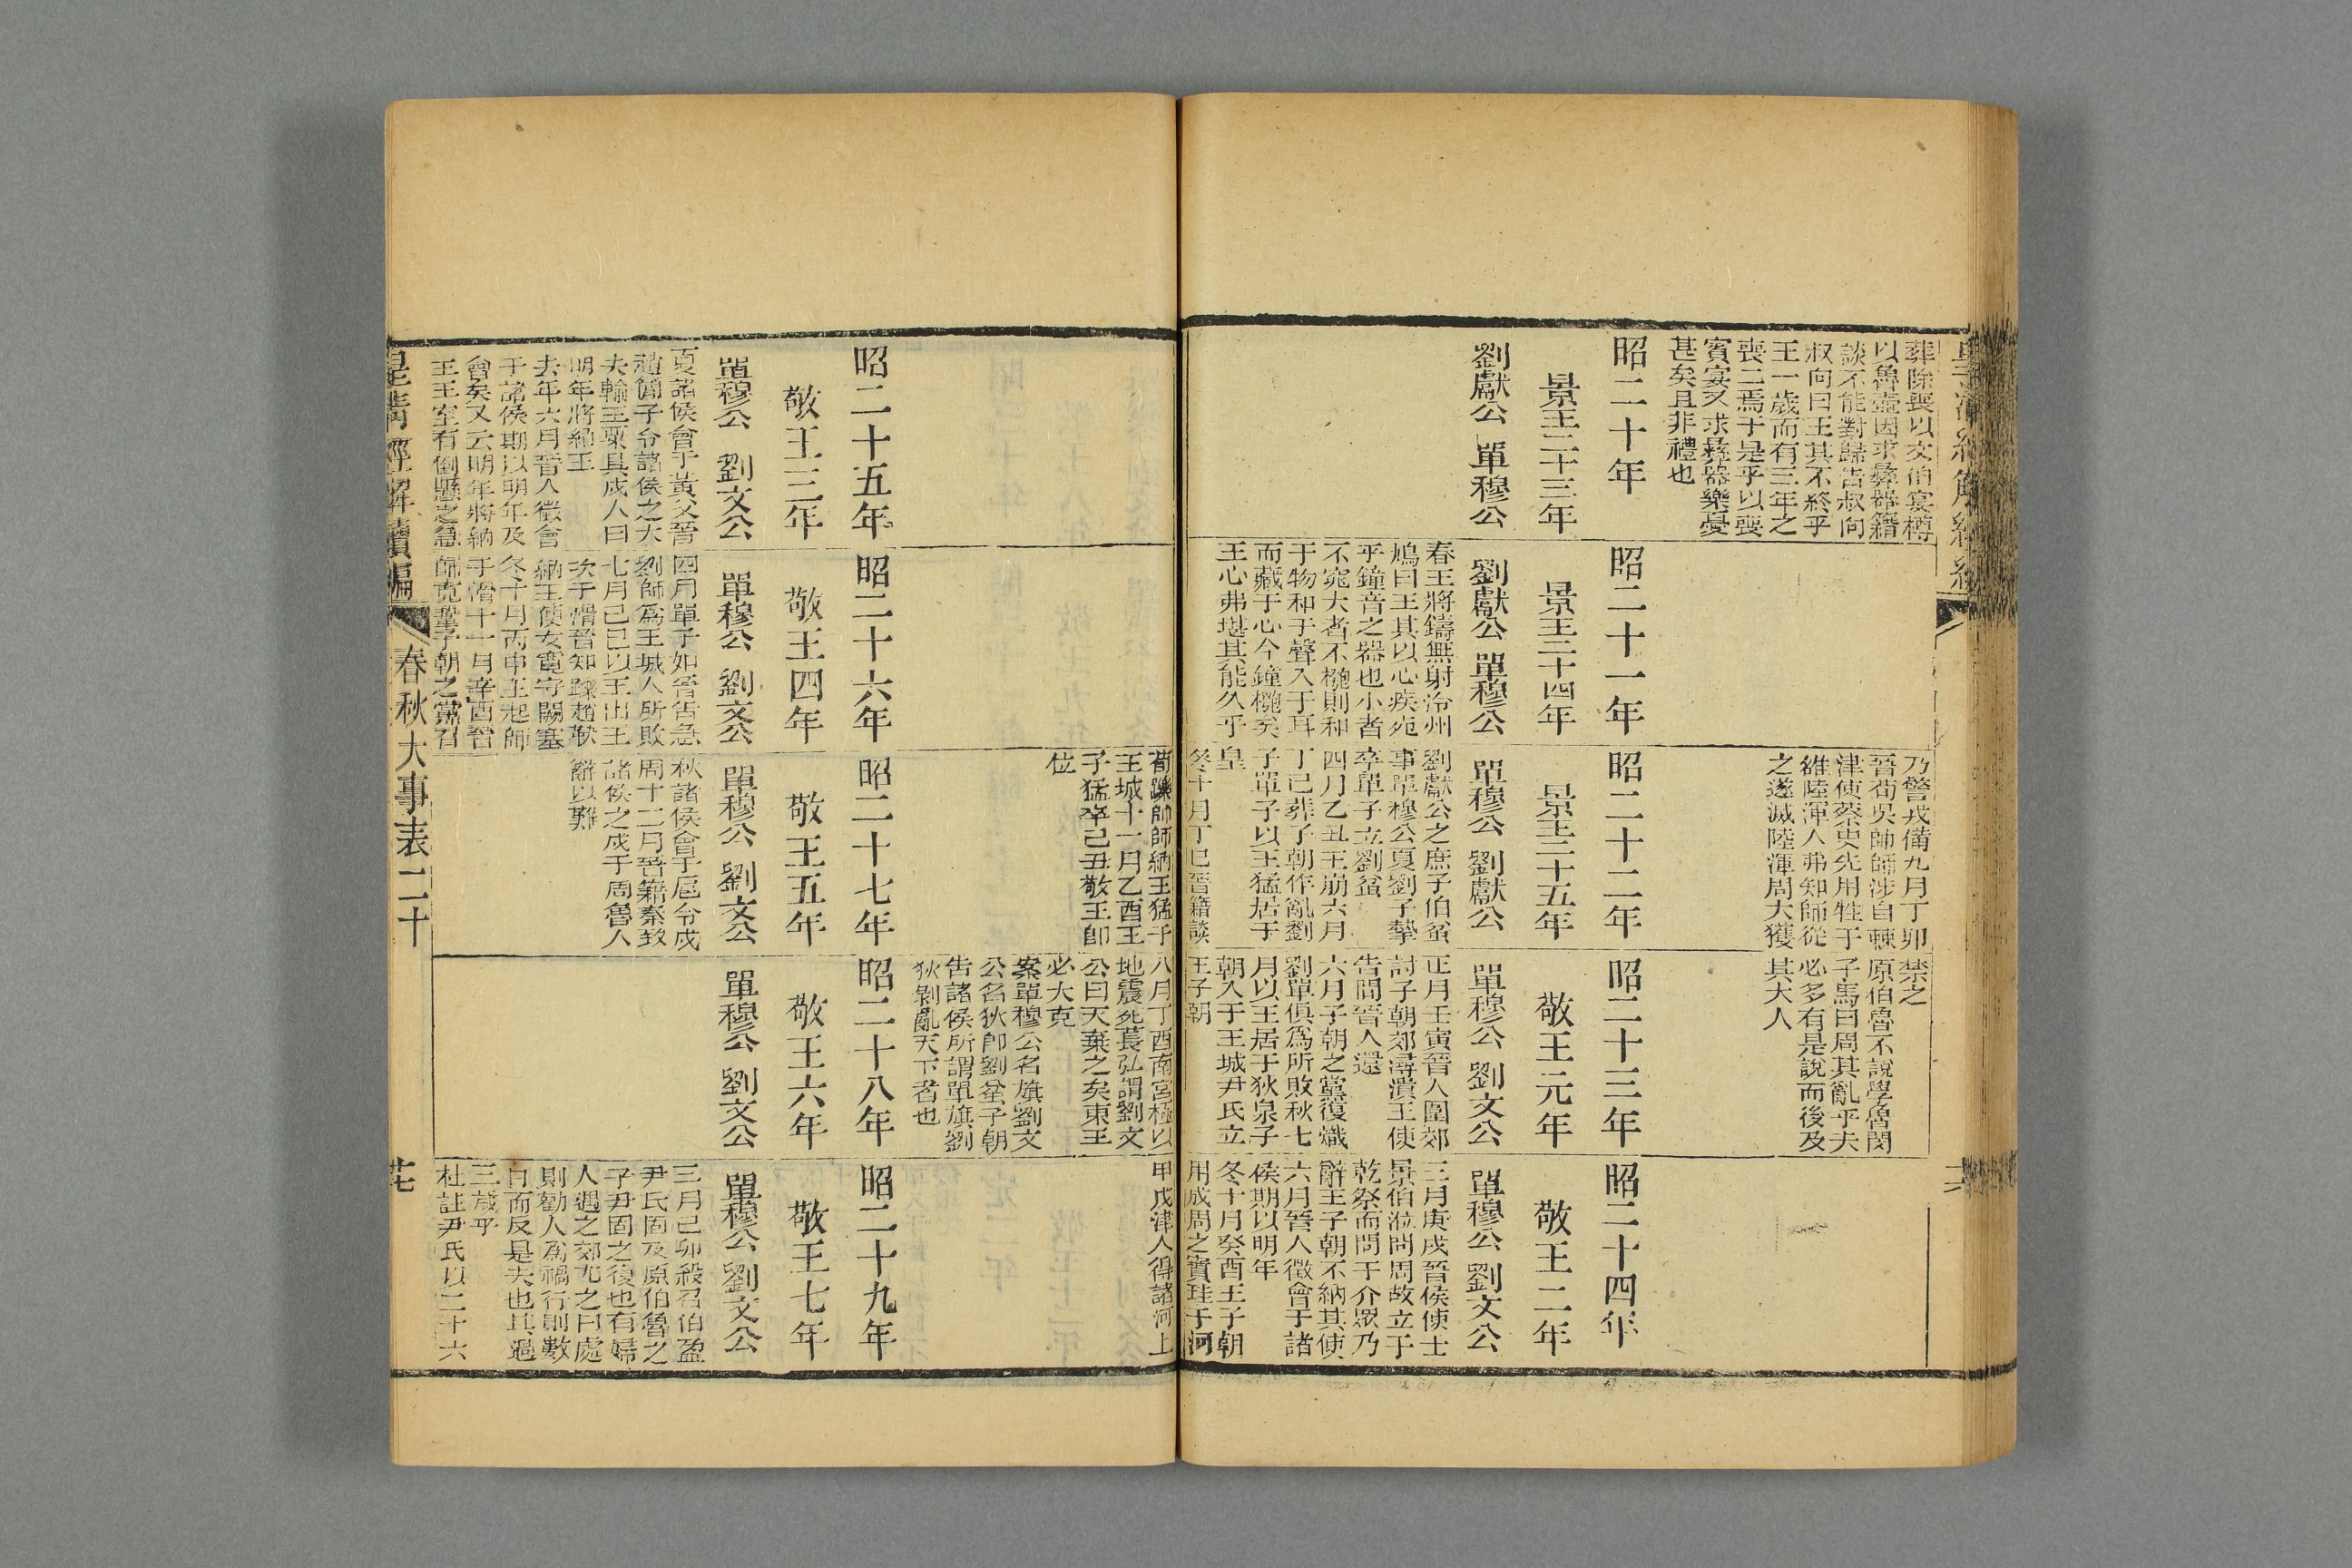 葬除喪以文伯宴樽
以魯壺因求彝器籍
談不能對歸告叔向
叔向曰王其不終乎
王一歲而有三年之
喪二焉于是乎以喪
賓宴又求彝器樂憂
甚矣且非禮也
乃警戎備九月丁卯
晉荀吳帥師涉自棘
津使祭史先用牲于
維陸渾人弗知師從
之遂滅陸渾周大獲
禁之
原伯魯不說學魯閔
子馬曰周其亂乎夫
必多有是說而後及
其大人
昭二十年
景王二十三年
劉獻公 單穆公
昭二十一年
景王二十四年
劉獻公 單穆公
春王將鑄無射泠州
鳩曰王其以心疾死
乎鐘音之器也小者
不窕大者不槬則和
于物和于聲入于耳
而藏于心今鐘槬矣
王心弗堪其能久乎
昭二十二年
景王二十五年
單穆公 劉獻公
劉獻公之庶子伯蚠
事單穆公夏劉子摯
卒單子立劉蚠
四月乙丑王崩六月
丁巳葬子朝作亂劉
子單子以王猛居于
皇
冬十月丁巳晉籍談
昭二十三年
敬王元年
單穆公 劉文公
正月壬寅晉人圍郊
討子朝郊鄩潰王使
告閒晉人還
六月子朝之黨復熾
劉單俱為所敗秋七
月以王居于狄泉子
朝入于王城尹氏立
王子朝
昭二十四年
敬王二年
單穆公 劉文公
三月庚戌晉侯使士
景伯涖問周故立于
乾祭而問于介眾乃
辭王子朝不納其使
六月晉人徵會于諸
侯期以明年
冬十月癸酉王子朝
用成周之寶珪于河
荀躒帥師納王猛于
王城十一月乙酉王
子猛卒己丑敬王卽
位
八月丁酉南宮極以
地震死萇弘謂劉文
公曰天棄之矣東王
必大克
案單穆公名旗劉文
公名狄卽劉蚠子朝
告諸侯所謂單旗劉
狄剝亂天下者也
甲戌津人得諸河上
昭二十五年
敬王三年
單穆公 劉文公
夏諸侯會于黃父晉
趙簡子令諸侯之大
夫輸王粟具戍人曰
明年將納王
去年六月晉人徵會
于諸侯期以明年及
會矣又云明年將納
王王室有倒懸之急
昭二十六年
敬王四年
單穆公 劉文公
四月單子如晉告急
劉師為王城人所敗
七月己巳以王出王
次于滑晉知躒趙鞅
納王使女寬守闕塞
冬十月丙申王起師
于滑十一月辛酉晉
師克鞏子朝之黨召
昭二十七年
敬王五年
單穆公 劉文公
秋諸侯會于扈令戍
周十二月晉籍秦致
諸侯之戍于周魯人
辭以難
昭二十八年
敬王六年
單穆公 劉文公
昭二十九年
敬王七年
單穆公 劉文公
三月己卯殺召伯盈
尹氏固及原伯魯之
子尹固之復也有婦
人遇之郊尤之曰處
則勸人為禍行則數
日而反是夫也其過
三歲乎
杜註尹氏以二十六
皇清經解續編
春秋大事表二十